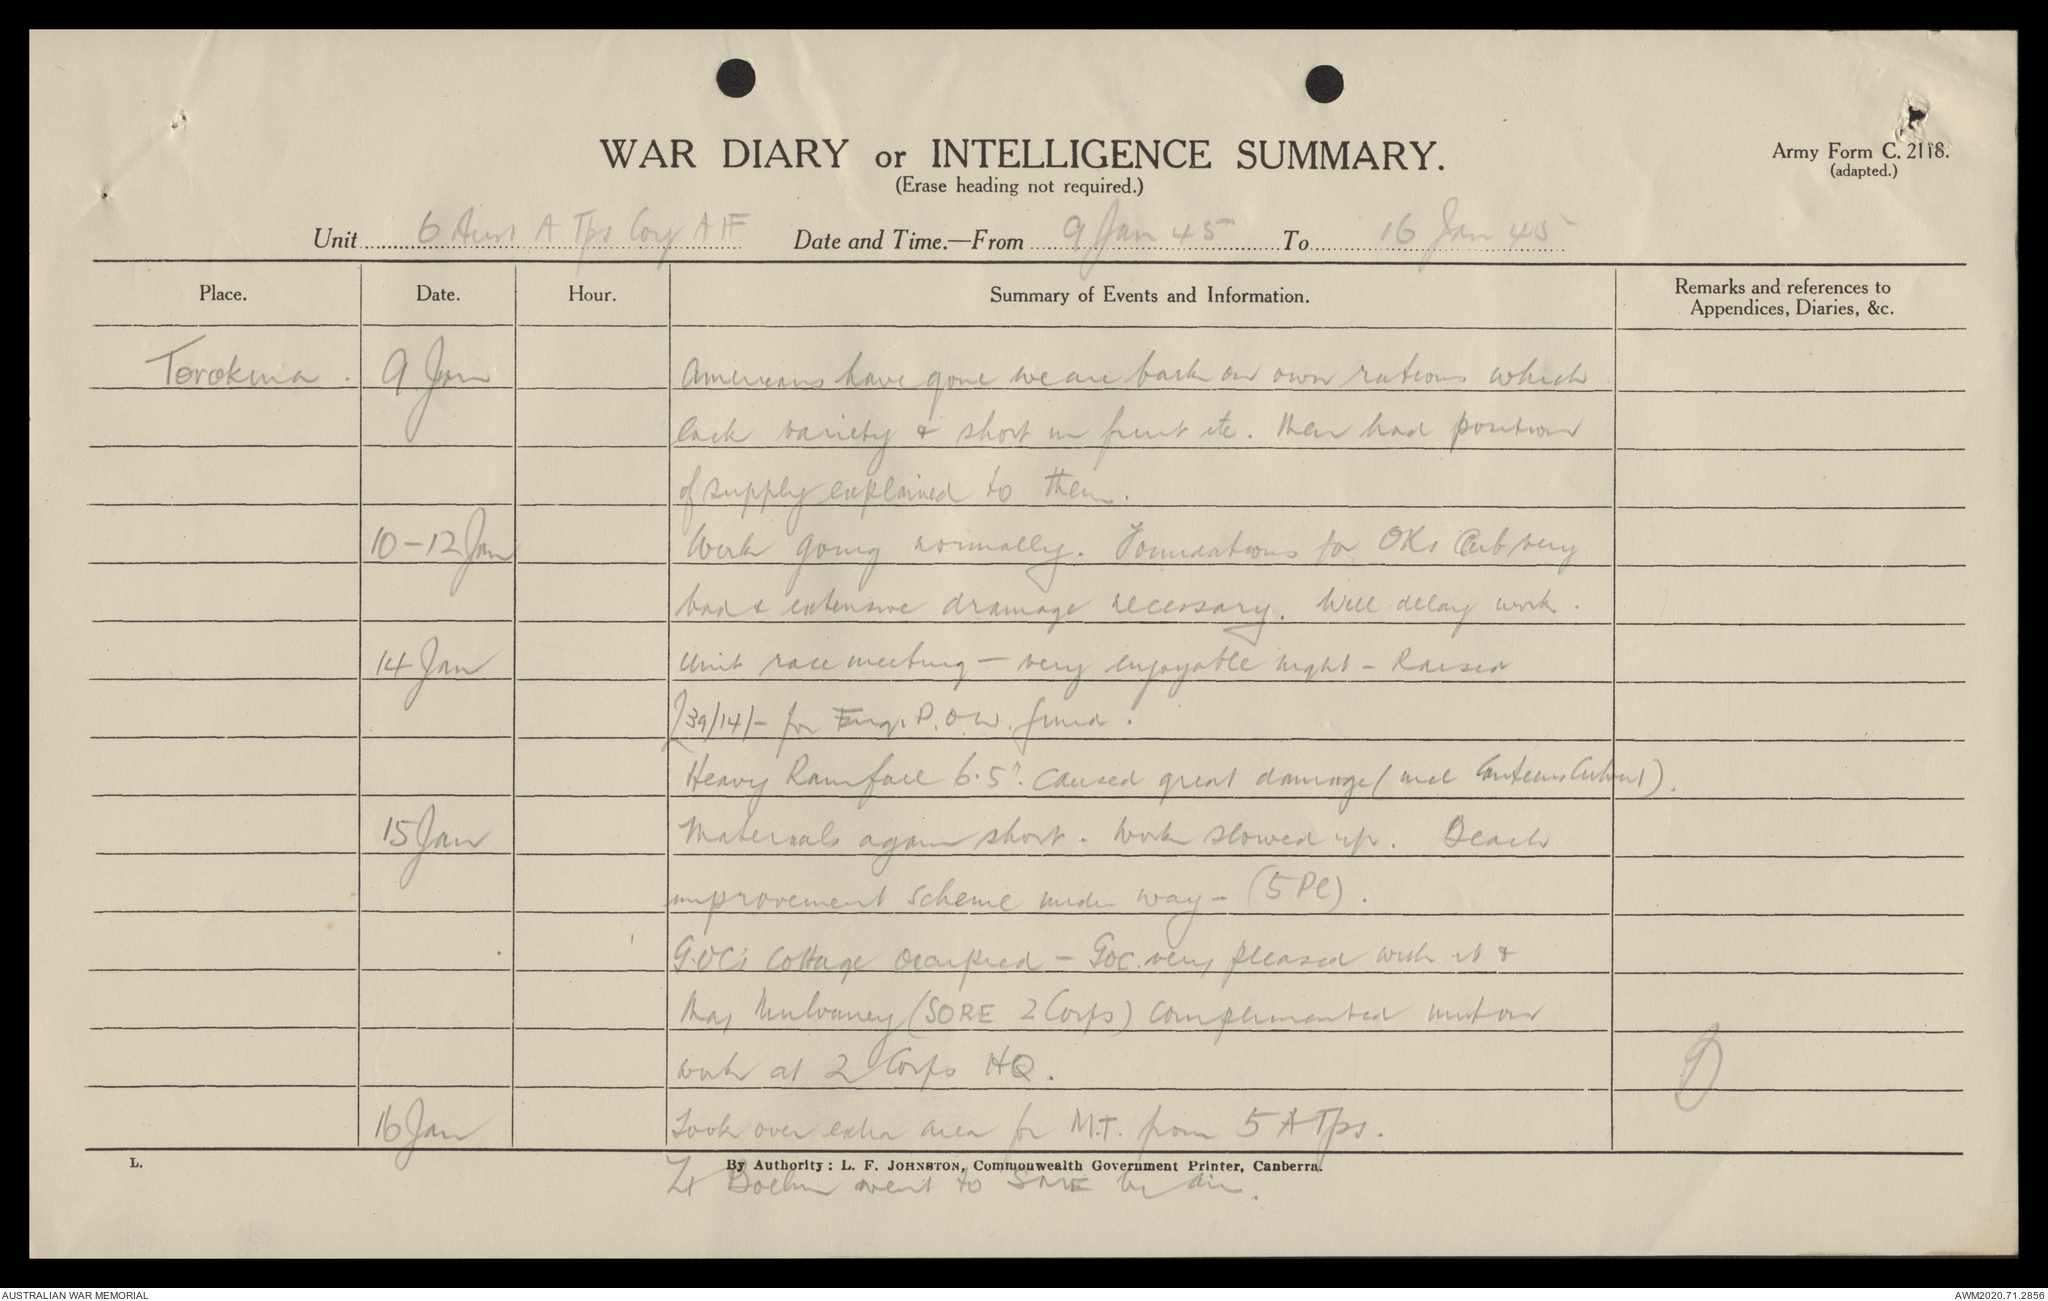 WAR DIARY or INTELLIGENCE SUMMARY.
(Erase heading not required.)
Army Form C. 2118.
(adapted.)
Unit 6 Aust A Tps Coy AIF Date and Time.—From 9 Jan 45 To 16 Jan 45
Place. Date. Hour. Summary of Events and Information. Remarks and references to Appendices, Diaries, &c.
Torokina. 9 Jan Americans have gone we are back on own rations which
lack variety & short in fruit etc. Men had position
of supply explained to them.
10-12 Jan Work going normally. Foundations for ORs Club very
bad & extensive drainage necessary. Will delay work.
14 Jan Unit race meeting - very enjoyable night - Raised
£39/14/- for Eng. P.O.W. fund.
Heavy Rainfall 6.5". Caused great damage (incl Canteens Culvert).
15 Jan Materials again short. Work slowed up. Beach
improvement scheme under way - (5 Pl).
G.O.C's Cottage occupied - GOC. very pleased with it &
Maj Mulvaney (SORE 2 Corps) complimented unit on
work at 2 Corps HQ.
16 Jan Took over extra area for M.T. from 5 A Tps.
Lt Boehm went to SME by air.
L. By Authority: L. F. JOHNSTON, Commonwealth Government Printer, Canberra.
AUSTRALIAN WAR MEMORIAL AWM2020.71.2856